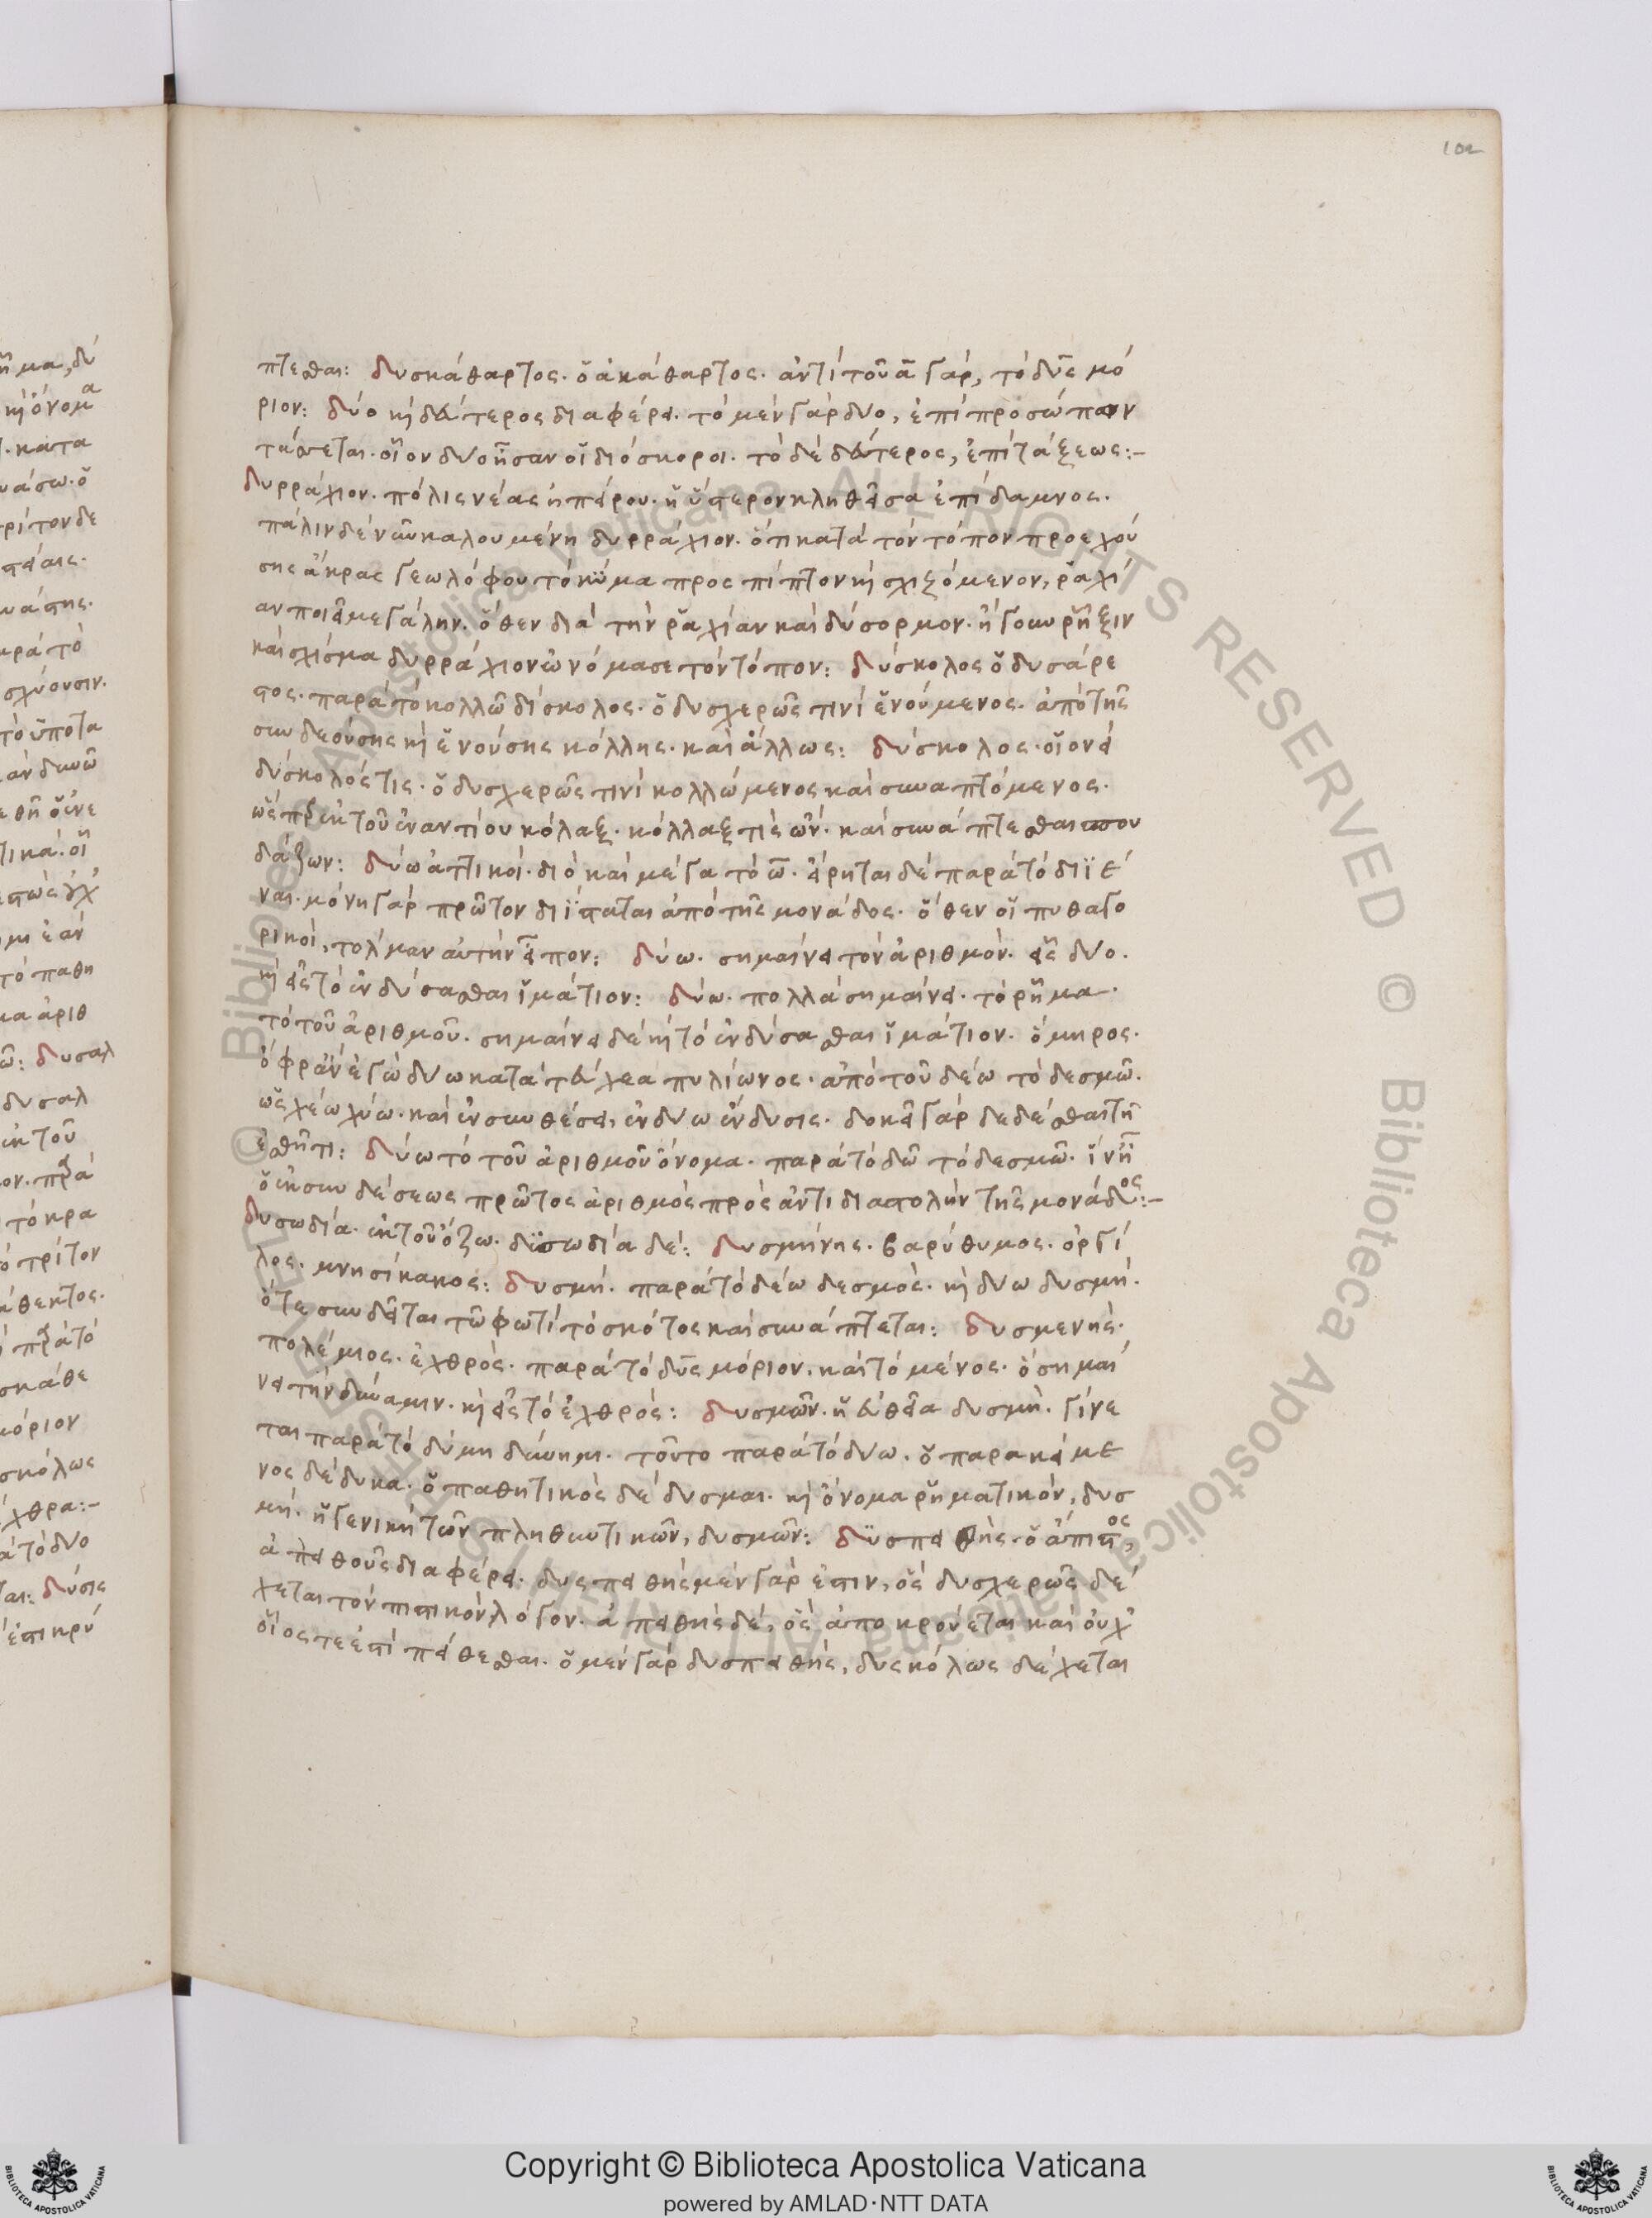 102
πτεσθαι: δυσκάθαρτος· ὁ ἀκάθαρτος· ἀντὶ τοῦ ᾱ γὰρ, τὸ δῦς μό
ριον: δύο κὶ δεύτερος διαφέρει· τὸ μὲν γὰρ δύο, ἐπὶ προσώπων
τάσσεται· οἷον δύο ἦσαν οἱ διόσκοροι· τὸ δὲ δεύτερος, ἐπὶ τάξεως:-
δυρράχιον· πόλις νέας ἠπείρου· ἡ ὕστερον κληθεῖσα ἐπίδαμνος·
πάλιν δὲ νῦν καλουμένη δυρράχιον· ὅτι κατὰ τὸν τόπον προεχού
σης ἄκρας γεωλόφου τὸ κῦμα προσπίπτον κὶ σχιζόμενον, ῥαχί
αν ποιεῖ μεγάλην· ὅθεν διὰ τὴν ῥαχίαν καὶ δύσορμον· ἤγουν ῥῆξιν
καὶ σχίσμα δυρράχιον ὠνόμασε τὸν τόπον: δύσκολος ὁ δυσάρε
στος· παρὰ τὸ κολλῶ δίσκολος· ὁ δυσχερῶς τινὶ ἑνούμενος· ἀπὸ τῆς
συνδεούσης κὶ ἑνούσης κόλλης· καὶ ἄλλως: δύσκολος· οἱονεὶ
δύσκολός τις· ὁ δυσχερῶς τινὶ κολλώμενος καὶ συναπτόμενος·
ὥσπερ ἐκ τοῦ ἐναντίου κόλαξ· κόλλαξ τὶς ὢν· καὶ συνάπτεσθαι σπου
δάζων: δύω ἀττικοί· διὸ καὶ μέγα τὸ ω̄· εἴρηται δὲ παρὰ τὸ διϊέ
ναι· μόνη γὰρ πρῶτον διΐσταται ἀπὸ τῆς μονάδος· ὅθεν οἱ πυθαγο
ρικοὶ, τολίμαν αὐτὴν εἶπον: δύω· σημαίνει τὸν ἀριθμόν· εἰς δύο·
κὶ εἰς τὸ ἐνδύσασθαι ἱμάτιον: δύω· πολλὰ σημαίνει· τὸ ῥῆμα·
τὸ τοῦ ἀριθμοῦ· σημαίνει δὲ κὶ τὸ ἐνδύσασθαι ἱμάτιον· ὅμηρος·
ὄφρ' ἂν ἐγὼ δύω κατὰ τεύχεα πυλίωνος· ἀπὸ τοῦ δέω τὸ δεσμῶ·
ὡς χέω χύω· καὶ ἐν συνθέσει, ἐνδύω ἔνδυσις· δοκεῖ γὰρ δεδέσθαι τῇ
ἐσθῆτι: δύω τὸ τοῦ ἀριθμοῦ ὄνομα· παρὰ τὸ δῶ τὸ δεσμῶ· ἵν' ᾖ
ὁ ἐκ συνδέσεως πρῶτος ἀριθμὸς πρὸς ἀντιδιαστολὴν τῆς μονάδος:-
δυσωδία· ἐκ τοῦ ὄζω· δυσωδία δέ: δυσμήνης· βαρύθυμος· ὀργί
λος· μνησίκακος: δυσμή· παρὰ τὸ δέω δεσμὸς· κὶ δύω δυσμή·
ὅτε συνδεῖται τῶ φωτὶ τὸ σκότος καὶ συνάπτεται: δυσμενής·
πολέμιος· ἐχθρός· παρὰ τὸ δῦς μόριον, καὶ τὸ μένος· ὃ σημαί
νει τὴν δύναμιν· κὶ εἰς τὸ ἐχθρός: δυσμῶν· ἡ εὐθεῖα δυσμὴ· γίνε
ται παρὰ τὸ δύμη δύνημι· τοῦτο παρὰ τὸ δύω· ὁ παρακείμε
νος δέδυκα· ὁ παθητικὸς δέδυσμαι· κὶ ὄνομα ῥηματικὸν, δυσ
μή· ἡ γενικὴ τῶν πληθυντικῶν, δυσμῶν: δϋσπειθὴς· ὁ ἄπιστος,
ἀπειθοῦς διαφέρει· δυσπειθὴς μὲν γάρ ἐστιν, ὃς δυσχερῶς δέ
χεται τὸν πιστικὸν λόγον· ἀπειθὴς δὲ, ὃς ἀποκρούεται καὶ οὐχ
οἷός τε ἐστὶ πείθεσθαι· ὁ μὲν γὰρ δυσπειθής, δυσκόλως δέχεται
© Biblioteca Apostolica Vaticana ALL RIGHTS RESERVED
Copyright © Biblioteca Apostolica Vaticana
powered by AMLAD·NTT DATA